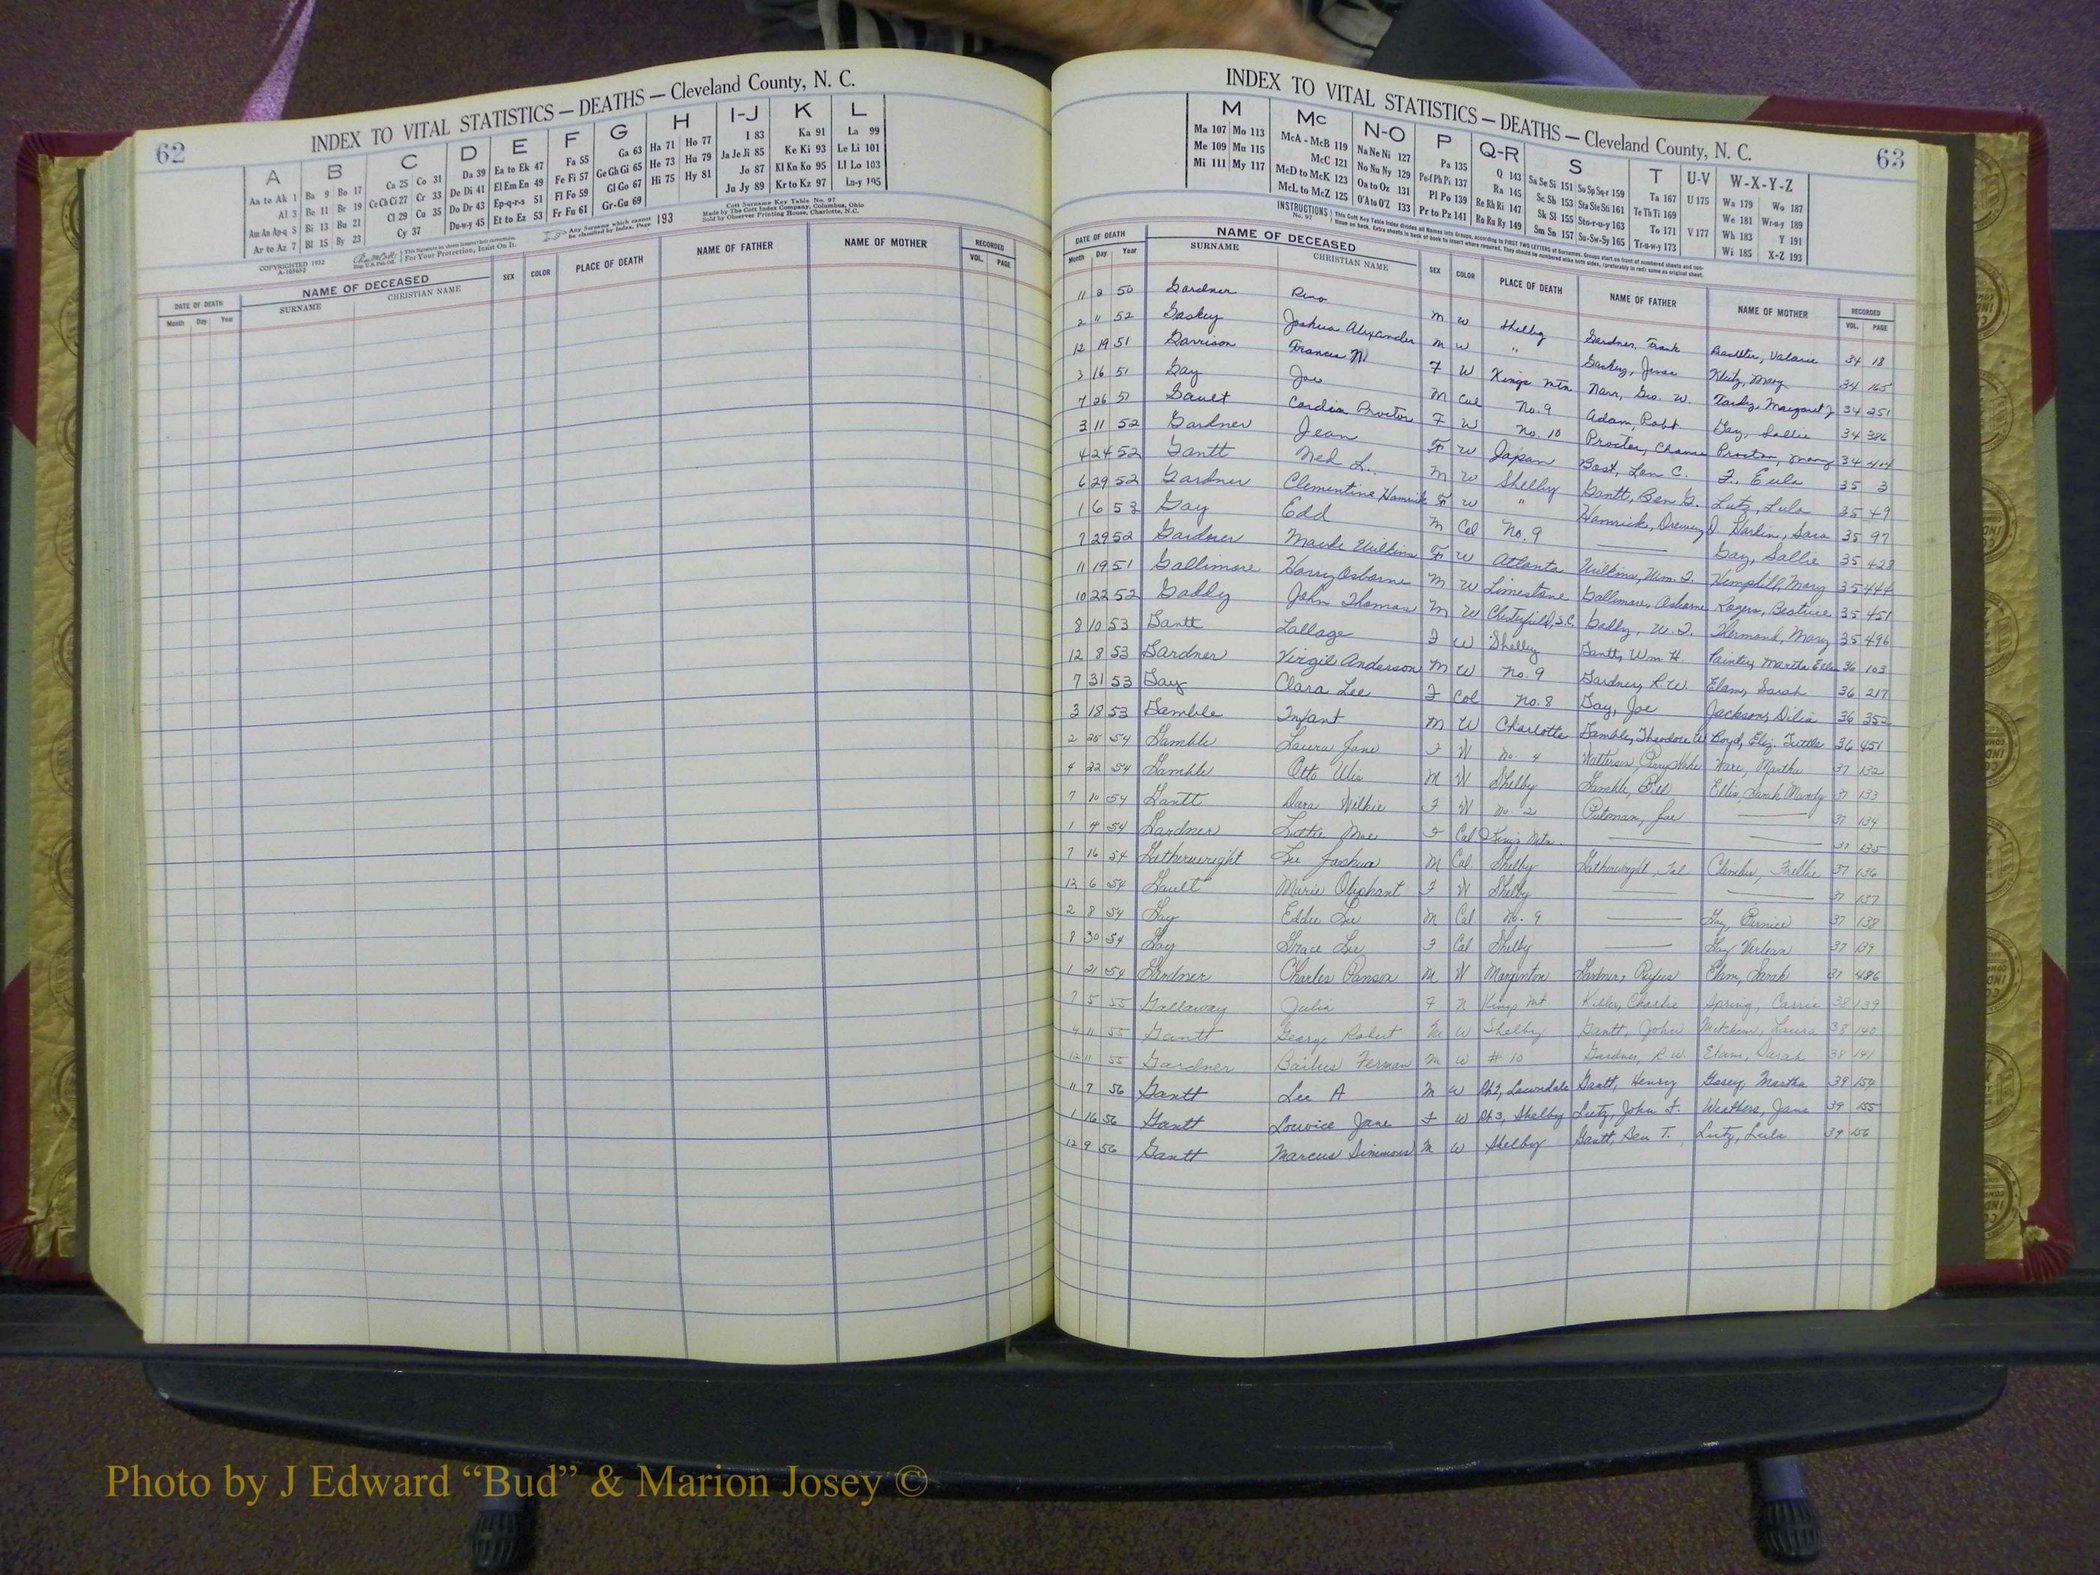 62
INDEX TO VITAL STATISTICS — DEATHS — Cleveland County, N. C.
A B C D E F G H I-J K L
Aa to Ak 1 Ba 9 Bo 17 Ca 25 Co 31 Da 39 Ea to Ek 47 Fa 55 Ga 63 Ha 71 Ho 77 I 83 Ka 91 La 99
Al 3 Be 11 Br 19 Ce Ch Ci 27 Cr 33 De Di 41 El Em En 49 Fe Fi 57 Ge Gh Gi 65 He 73 Hu 79 Ja Je Ji 85 Ke Ki 93 Le Li 101
Am An Ap-q 5 Bi 13 Bu 21 Cl 29 Cu 35 Do Dr 43 Ep-q-r-s 51 Fl Fo 59 Gl Go 67 Hi 75 Hy 81 Jo 87 Kl Kn Ko 95 Ll Lo 103
Ar to Az 7 Bl 15 By 23 Cy 37 Du-w-y 45 Et to Ez 53 Fr Fu 61 Gr-Gu 69 Ju Jy 89 Kr to Kz 97 Lu-y 105
COPYRIGHTED 1932
A-103652
This Signature on sheets insures their correctness.
For Your Protection, Insist On It.
Any Surname which cannot be classified by Index. Page 193
Cott Surname Key Table No. 97
Made by The Cott Index Company, Columbus, Ohio
Sold by Observer Printing House, Charlotte, N.C.
DATE OF DEATH NAME OF DECEASED SEX COLOR PLACE OF DEATH NAME OF FATHER NAME OF MOTHER RECORDED
Month Day Year SURNAME CHRISTIAN NAME VOL. PAGE
INDEX TO VITAL STATISTICS — DEATHS — Cleveland County, N. C.
63
M Mc N-O P Q-R S T U-V W-X-Y-Z
Ma 107 Mo 113 McA - McB 119 Na Ne Ni 127 Pa 135 Q 143 Sa Se Si 151 So Sp Sq-r 159 Ta 167 U 175 Wa 179 Wo 187
Me 109 Mu 115 McC 121 No Nu Ny 129 Pe-f Ph Pi 137 Ra 145 Sc Sh 153 Sta Ste Sti 161 Te Th Ti 169 We 181 Wr-u-y 189
Mi 111 My 117 McD to McK 123 Oa to Oz 131 Pl Po 139 Re Rh Ri 147 Sk Sl 155 Sto-r-u-y 163 To 171 V 177 Wh 183 Y 191
McL to McZ 125 O'A to O'Z 133 Pr to Pz 141 Ro Ru Ry 149 Sm Sn 157 Su-Sw-Sy 165 Tr-u-w-y 173 Wi 185 X-Z 193
INSTRUCTIONS No. 97
DATE OF DEATH NAME OF DECEASED SEX COLOR PLACE OF DEATH NAME OF FATHER NAME OF MOTHER RECORDED
Month Day Year SURNAME CHRISTIAN NAME VOL. PAGE
11 2 50 Gardner M W Shelby Gardner, Frank 34 18
2 11 52 Gaskey Joshua Alexander M W " Gaskey, Jesse Klutz, Mary 34 165
12 19 51 Garrison Frances N. F W Kings Mtn Narr, Geo. W. Margaret J 34 251
3 16 51 Gay Joe M Col No. 9 Adam, Robt. Gay, Sallie 34 386
7 26 51 Gault Cordia Proctor F W No. 10 Proctor, Proctor, Mary 34 404
3 11 52 Gardner Jean F W Japan Bost, Lon C. F., Eula 35 3
4 24 52 Gantt Ned L. M W Shelby Gantt, Ben G. Lutz, Lula 35 49
6 29 52 Gardner Clementine Hamrick F W " Hamrick, Drewery D Sara 35 97
1 6 53 Gay Edd M Col No. 9 — Gay, Sallie 35 428
7 29 52 Gardner Maude Wilkins F W Atlanta Wilkins, Wm. T. Hemphill, Mary 35 444
11 19 51 Gallimore Harry Osborne M W Limestone Gallimore, Osborne Rogers, Beatrice 35 451
10 22 52 Gaddy John Thomas M W Chesterfield, S.C. Gaddy, W. T. Thurmond, Mary 35 496
8 10 53 Gantt Lallage F W Shelby Gantt, Wm. H. Painter, Martha Ellen 36 103
12 8 53 Gardner Virgil Anderson M W No. 9 Gardner, R.W. Elam, Sarah 36 217
7 31 53 Gay Clara Lee F Col No. 8 Gay, Joe Jackson, Dilia 36 352
3 18 53 Gamble Infant M W Charlotte Gamble, Theodore W Boyd, Eliz. Tuttle 36 451
2 25 54 Gamble Laura Jane F W No. 4 Watterson, Ware, Martha 37 132
4 22 54 Gamble Otto M W Shelby Gamble, Bill Ellis, Sarah Mandy 37 133
7 10 54 Gantt Dora Wilkie F W No. 2 Putnam, Joe — 37 134
1 4 54 Gardner Lottie Mae F Col Kings Mtn. — — 37 135
7 16 54 Gatherwright Lee Joshua M Col Shelby Gatherwright, 37 136
12 6 54 Gault Marie Oliphant F W Shelby — — 37 137
2 8 54 Gay Eddie Lee M Col No. 9 — Gay, Bernice 37 138
9 30 54 Gay Grace Lee F Col Shelby — Gay Verlean 37 139
1 21 54 Gardner Charles Ranson M W Morganton Gardner, Rufus Elam, Sarah 37 486
7 5 55 Gallaway Julia F N Kings Mt Charlie Spring, Carrie 38 139
4 11 55 Gantt George Robert M W Shelby Gantt, John Metchem, Laura 38 140
12 11 55 Gardner Bailus Ferman M W # 10 Gardner, R.W. Elam, Sarah 38 141
11 7 56 Gantt Lee A M W Rt2, Lawndale Gantt, Henry Martha 39 154
1 16 56 Gantt Louvice Jane F W Rt3, Shelby Lutz, John F. Weathers, Jane 39 155
12 9 56 Gantt Marcus Simmons M W Shelby Gantt, Ben T. Lutz, Lula 39 156
Photo by J Edward “Bud” & Marion Josey ©